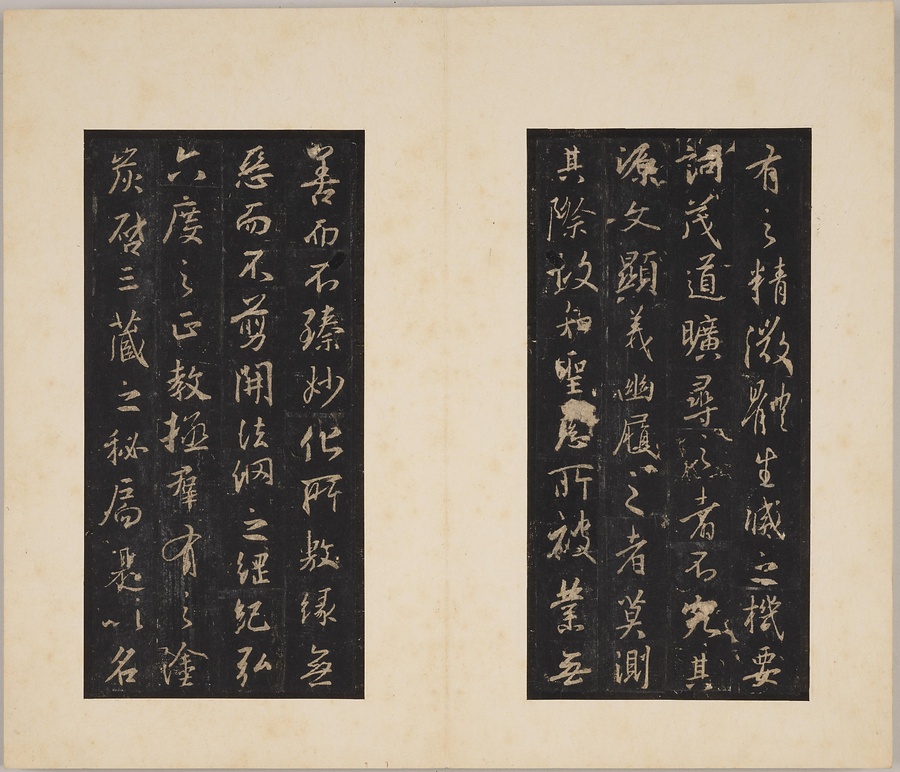 有之精微體生滅之機要
詞茂道曠尋之者不究其
源文顯義幽履之者莫測
其際故知聖慈所被業無
善而不臻妙化所敷緣無
惡而不剪開法網之綱紀弘
六度之正教拯群有之塗
炭啓三藏之秘扃是以名